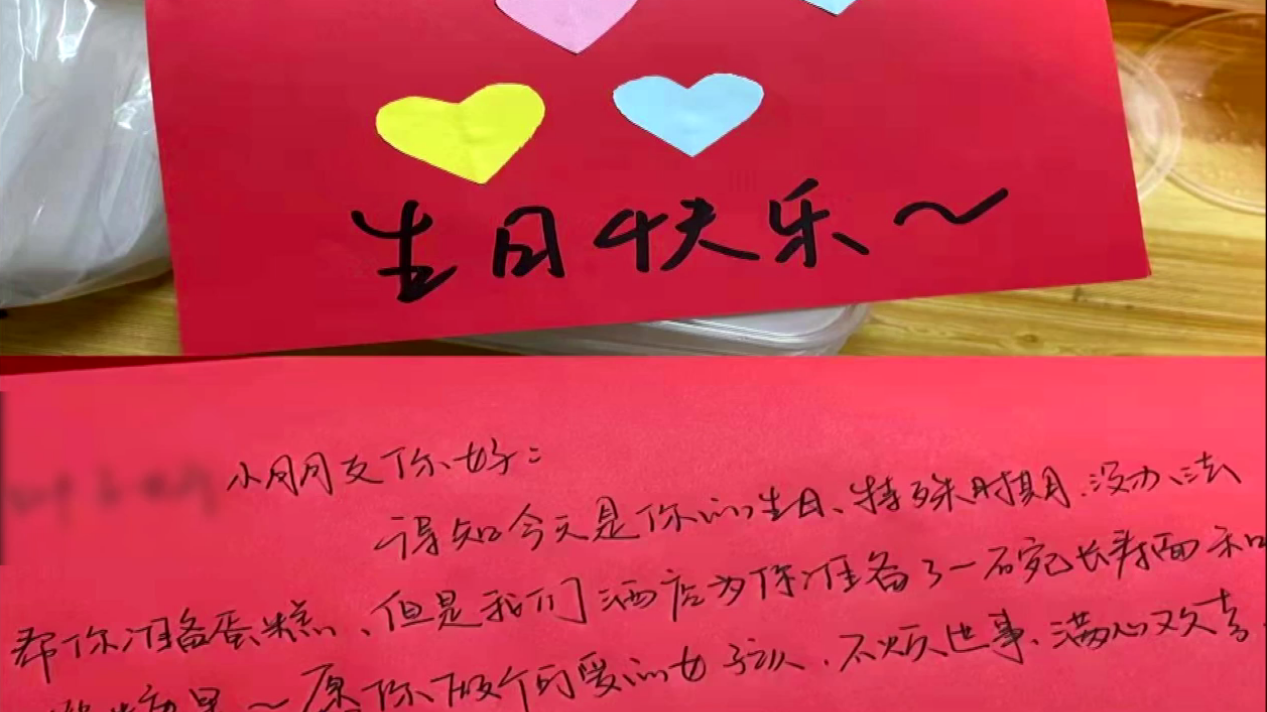 生日快乐~
小朋友你好：
得知今天是你的生日、特殊时期、没办法
帮你准备蛋糕、但是我们酒店为你准备了一碗长寿面和
~愿你做个可爱的女孩、不烦世事、满心欢喜